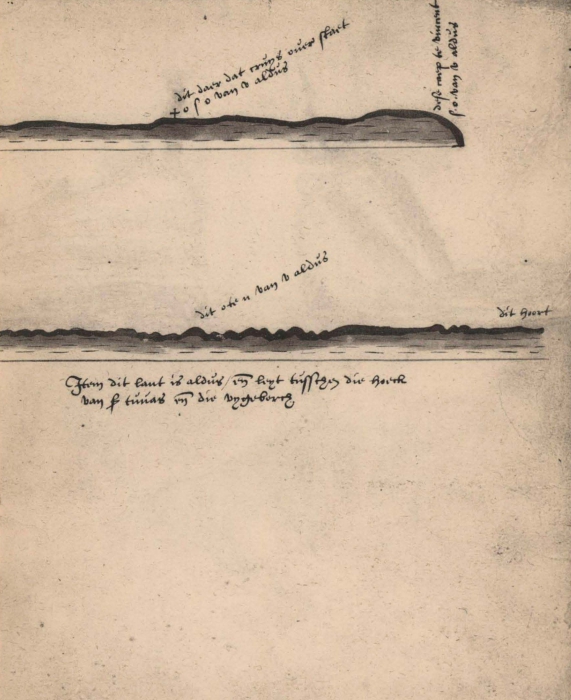 dit daer dat cruys ouer staet
o s o van v aldus
dese caep te vincent
s. o. van v aldus
dit ote n van v aldus
dit hoort
Item dit lant is aldus / en̄ leyt tusschen die hoeck
van tuuas en̄ die vygeborch